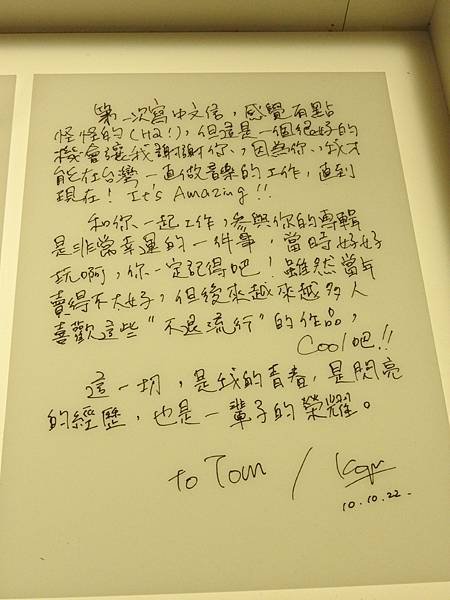 第一次寫中文信，感覺有點
怪怪的(H2!)，但這是一個很好的
機會讓我謝謝你、因為你、我才
能在台灣一直做音樂的工作，直到
現在！It's Amazing!!
和你一起工作，參與你的專輯
是非常幸運的一件事，當時好好
玩啊，你一定記得吧！雖然當年
賣得不太好，但後來越來越多人
喜歡這些"不退流行"的作品，
Cool吧!!
這一切，是我的青春，是閃亮
的經歷，也是一輩子的榮耀。
to Tom /
10.10.22.